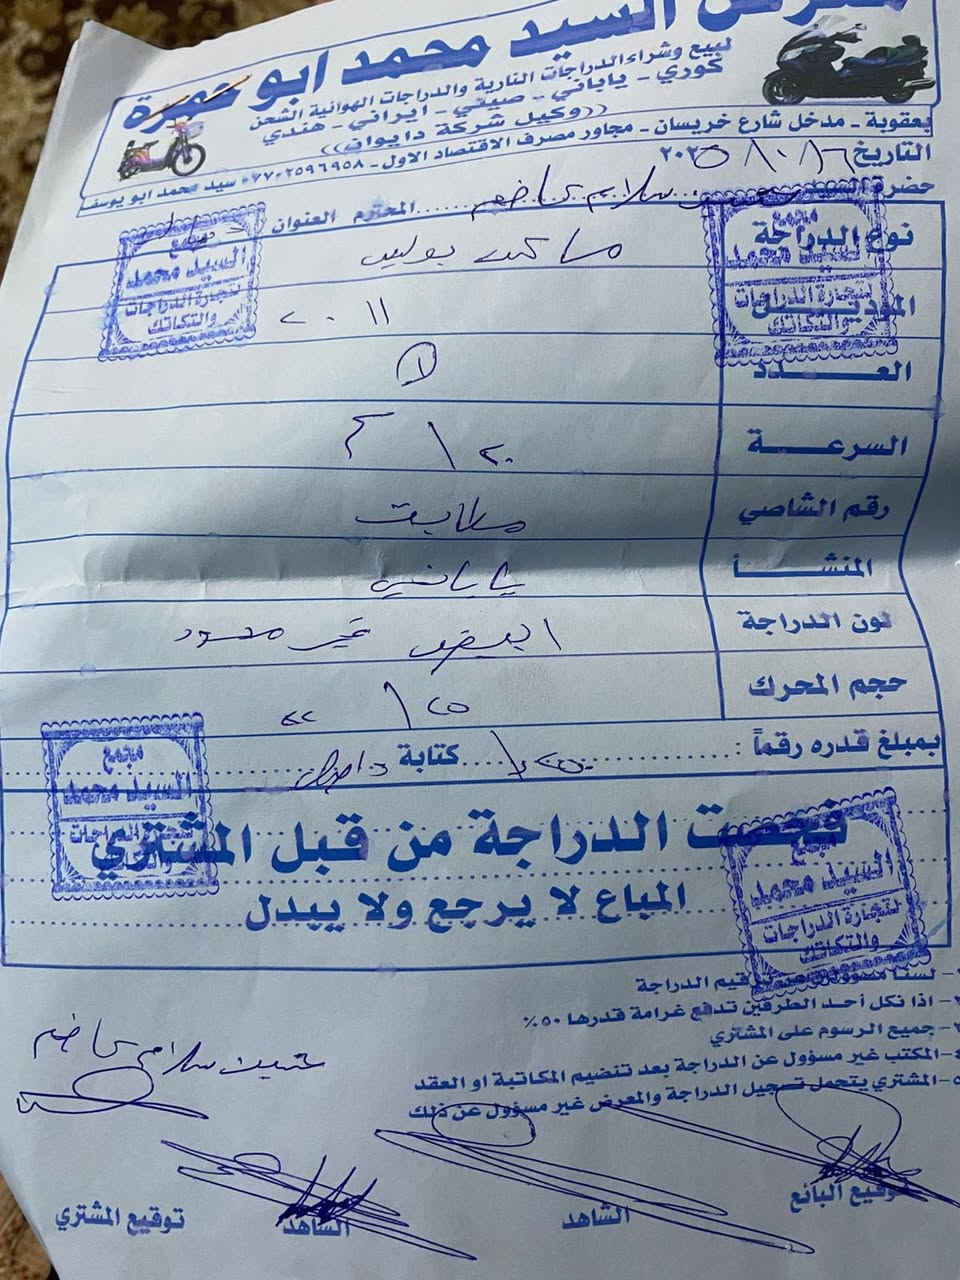 معرض السيد محمد ابو حمزة
لبيع وشراء الدراجات النارية والدراجات الهوائية الشحن
كوري - ياباني - صيني - ايراني - هندي
((وكيل شركة دايوان))
بعقوبة - مدخل شارع خريسان - مجاور مصرف الاقتصاد الاول - ٠٧٧٠٢٥٩٦٩٥٨ سيد محمد ابو يوسف
التاريخ ٢٠٢٥
حضرة السيد سلام كاظم المحترم العنوان
نوع الدراجة
الموديل ٢٠١١
العدد ١
السرعة
رقم الشاصي مطابق
المنشأ ياباني
لون الدراجة ابيض غير محدود
حجم المحرك
بمبلغ قدره رقماً : كتابة
فحصت الدراجة من قبل المشتري
المباع لا يرجع ولا يبدل
مجمع
السيد محمد
لتجارة الدراجات
والتكاتك
مجمع
السيد محمد
لتجارة الدراجات
والتكاتك
مجمع
السيد محمد
لتجارة الدراجات
مجمع
السيد محمد
لتجارة الدراجات
والتكاتك
١- لسنا الدراجة
٢- اذا نكل أحد الطرفين تدفع غرامة قدرها ٥٠٪
٣- جميع الرسوم على المشتري
٤- المكتب غير مسؤول عن الدراجة بعد تنضيم المكاتبة او العقد
٥- المشتري يتحمل تسجيل الدراجة والمعرض غير مسؤول عن ذلك
سلام كاظم
توقيع البائع
الشاهد
الشاهد
توقيع المشتري